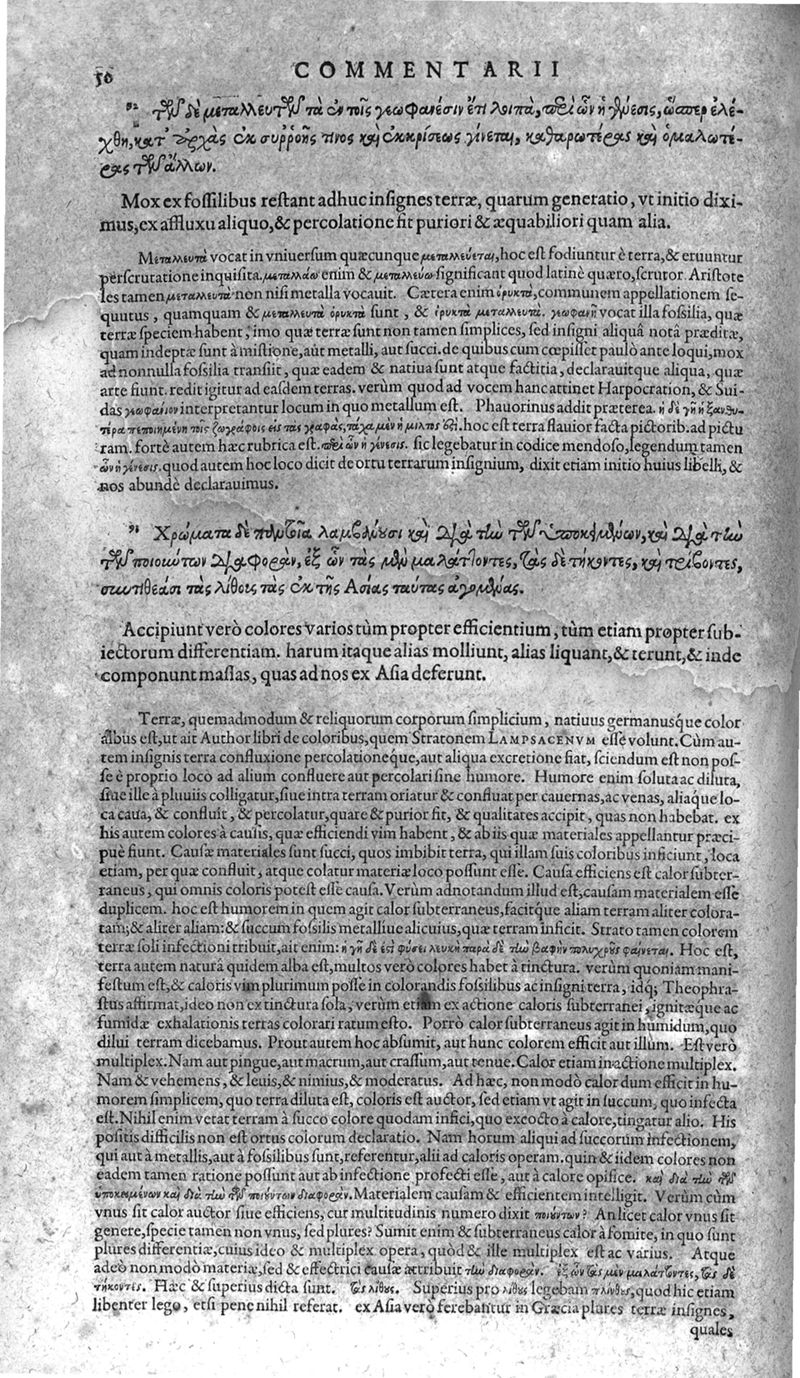 50
COMMENTARII
Τῶν δὲ μεταλλευτῶν τὰ ἐν τοῖς γεωφανέσιν ἔτι λοιπὰ, περὶ ὧν ἡ γένεσις, ὥσπερ ἐλέ-
χθη, κατ' ἀρχὰς ἐκ συρροῆς τινος καὶ ἐκκρίσεως γίνεται, καθαρωτέρας καὶ ὁμαλωτέ-
ρας τῶν ἄλλων.
Mox ex fossilibus restant adhuc insignes terræ, quarum generatio, vt initio dixi-
mus, ex affluxu aliquo, & percolatione fit puriori & æquabiliori quam alia.
Μεταλλευτὰ vocat in vniuersum quæcunque μεταλλεύεται, hoc est fodiuntur è terra, & eruuntur
perscrutatione inquisita. μεταλλάω enim & μεταλλεύω significant quod latinè quæro, scrutor. Aristote
les tamen μεταλλευτὰ non nisi metalla vocauit. Cætera enim ὀρυκτὰ, communem appellationem se-
quutus, quamquam & μεταλλευτὰ ὀρυκτὰ sunt, & ὀρυκτὰ μεταλλευτὰ. γεωφανῆ vocat illa fossilia, quæ
terræ speciem habent, imo quæ terræ sunt non tamen simplices, sed insigni aliquâ notâ præditæ,
quam indeptæ sunt à mistione, aut metalli, aut succi. de quibus cum cœpisset paulò ante loqui, mox
ad nonnulla fossilia transiit, quæ eadem & natiua sunt atque factitia, declarauitque aliqua, quæ
arte fiunt. redit igitur ad easdem terras. verùm quod ad vocem hanc attinet Harpocration, & Sui-
das γεωφάνιον interpretantur locum in quo metallum est. Phauorinus addit præterea. ἡ δὲ γῆ ἡ ξανθο-
τέρα πεποιημένη τοῖς ζωγράφοις εἰς τὰς γραφὰς, τάχα μὲν ἡ μίλτος ἐστί. hoc est terra flauior facta pictorib. ad pictu
ram. fortè autem hæc rubrica est. περὶ ὧν ἡ γένεσις. sic legebatur in codice mendoso, legendum tamen
ὧν ἡ γένεσις. quod autem hoc loco dicit de ortu terrarum insignium, dixit etiam initio huius libelli, &
nos abundè declarauimus.
Χρώματα δὲ παντοῖα λαμβάνουσι καὶ διὰ τὴν τῶν ὑποκειμένων, καὶ διὰ τὴν
τῶν ποιούντων διαφορὰν, ἐξ ὧν τὰς μὲν μαλάττοντες, τὰς δὲ τήκοντες, καὶ τρίβοντες,
συντιθέασι τὰς λίθους τὰς ἐκ τῆς Ἀσίας ταύτας ἀγομένας.
Accipiunt verò colores varios tùm propter efficientium, tùm etiam propter sub-
iectorum differentiam. harum itaque alias molliunt, alias liquant, & terunt, & inde
componunt massas, quas ad nos ex Asia deferunt.
Terræ, quemadmodum & reliquorum corporum simplicium, natiuus germanusque color
albus est, ut ait Author libri de coloribus, quem Stratonem LAMPSACENVM esse volunt. Cùm au-
tem insignis terra confluxione percolationeque, aut aliqua excretione fiat, sciendum est non pos-
se è proprio loco ad alium confluere aut percolari sine humore. Humore enim soluta ac diluta,
siue ille à pluuiis colligatur, siue intra terram oriatur & confluat per cauernas, ac venas, aliaque lo-
ca caua, & confluit, & percolatur, quare & purior fit, & qualitates accipit, quas non habebat. ex
his autem colores à causis, quæ efficiendi vim habent, & ab iis quæ materiales appellantur præci-
puè fiunt. Causæ materiales sunt succi, quos imbibit terra, qui illam suis coloribus inficiunt, loca
etiam, per quæ confluit, atque colatur materiæ loco possunt esse. Causa efficiens est calor subter-
raneus, qui omnis coloris potest esse causa. Verùm adnotandum illud est, causam materialem esse
duplicem. hoc est humorem in quem agit calor subterraneus, facitque aliam terram aliter colora-
tam, & aliter aliam: & succum fossilis metalliue alicuius, quæ terram inficit. Strato tamen colorem
terræ soli infectioni tribuit, ait enim: ἡ γῆ δὲ ἐστὶ φύσει λευκὴ παρὰ δὲ τὴν βαφὴν πολυχροῦς φαίνεται. Hoc est,
terra autem naturâ quidem alba est, multos verò colores habet à tinctura. verùm quoniam mani-
festum est, & caloris vim plurimum posse in colorandis fossilibus ac insigni terra, idq; Theophra-
stus affirmat, ideo non ex tinctura sola, verùm etiam ex actione caloris subterranei, ignitæque ac
fumidæ exhalationis terras colorari ratum esto. Porrò calor subterraneus agit in humidum, quo
dilui terram dicebamus. Prout autem hoc absumit, aut hunc colorem efficit aut illum. Est verò
multiplex. Nam aut pingue, aut macrum, aut crassum, aut tenue. Calor etiam in actione multiplex.
Nam & vehemens, & leuis, & nimius, & moderatus. Ad hæc, non modò calor dum efficit in hu-
morem simplicem, quo terra diluta est, coloris est auctor, sed etiam vt agit in succum, quo infecta
est. Nihil enim vetat terram à succo colore quodam infici, quo excocto à calore, tingatur alio. His
positis difficilis non est ortus colorum declaratio. Nam horum aliqui ad succorum infectionem,
qui aut à metallis, aut à fossilibus sunt, referentur, alii ad caloris operam. quin & iidem colores non
eadem tamen ratione possunt aut ab infectione profecti esse, aut à calore opifice. καὶ διὰ τὴν τῶν
ὑποκειμένων καὶ διὰ τὴν τῶν ποιούντων διαφορὰν. Materialem causam & efficientem intelligit. Verùm cùm
vnus sit calor auctor siue efficiens, cur multitudinis numero dixit ποιούντων? An licet calor vnus sit
genere, specie tamen non vnus, sed plures? Sumit enim & subterraneus calor à fomite, in quo sunt
plures differentiæ, cuius ideo & multiplex opera, quòd & ille multiplex est ac varius. Atque
adeò non modò materiæ, sed & effectrici causæ attribuit τὴν διαφορὰν. ἐξ ὧν τὰς μὲν μαλάττοντες, τὰς δὲ
τήκοντες. Hæc & superius dicta sunt. τὰς λίθους. Superius pro λίθους legebam πλίνθους, quod hic etiam
libenter lego, etsi pene nihil referat. ex Asia verò ferebantur in Græcia plures terræ insignes,
quales